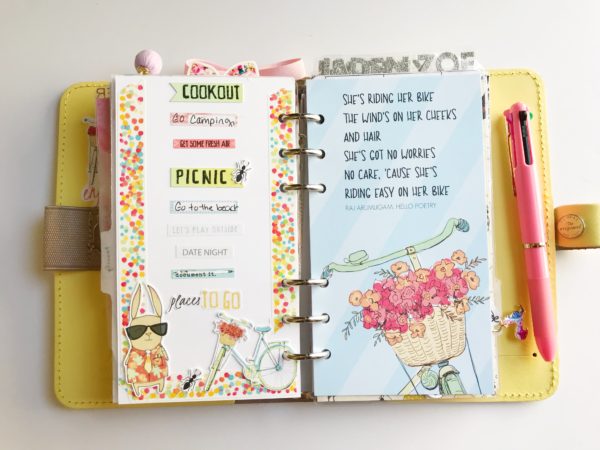 COOKOUT
Go Camping
GET SOME FRESH AIR
PICNIC
Go to the beach
LET'S PLAY OUTSIDE
DATE NIGHT
document it.
places TO GO
SHE'S RIDING HER BIKE
THE WIND'S ON HER CHEEKS
AND HAIR
SHE'S GOT NO WORRIES
NO CARE, 'CAUSE SHE'S
RIDING EASY ON HER BIKE
RAJ ARUMUGAM, HELLO POETRY